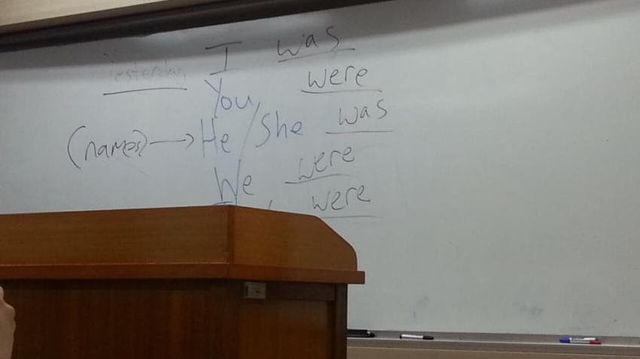 I was
Yesterday
You were
(names) → He/She was
We were
were